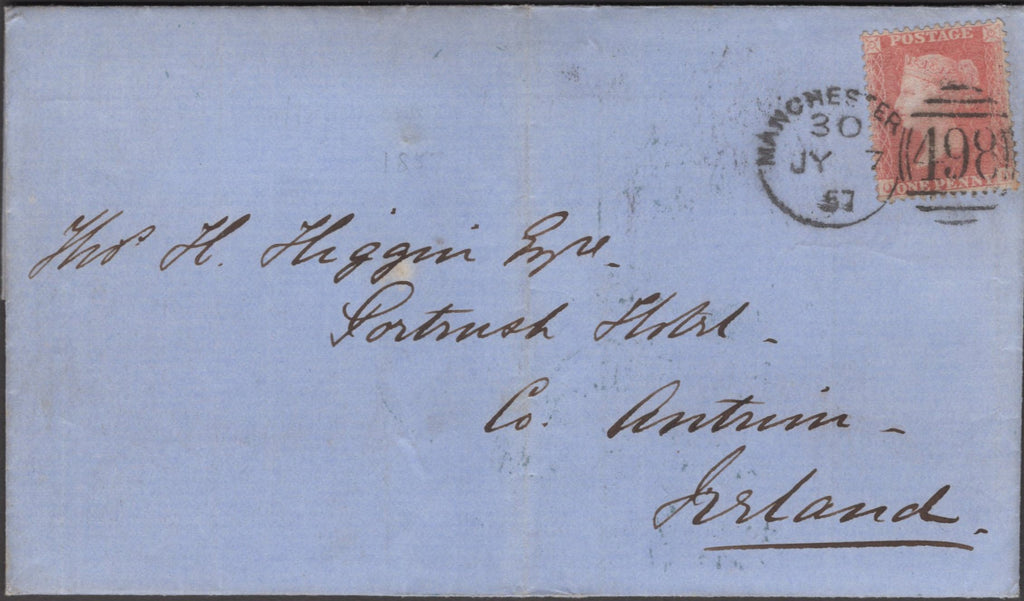 POSTAGE
MANCHESTER
30
JY 7
57
498
ONE PENNY
Thos H. Higgin Esqre.
Portrush Hotel.
Co. Antrim
Ireland.